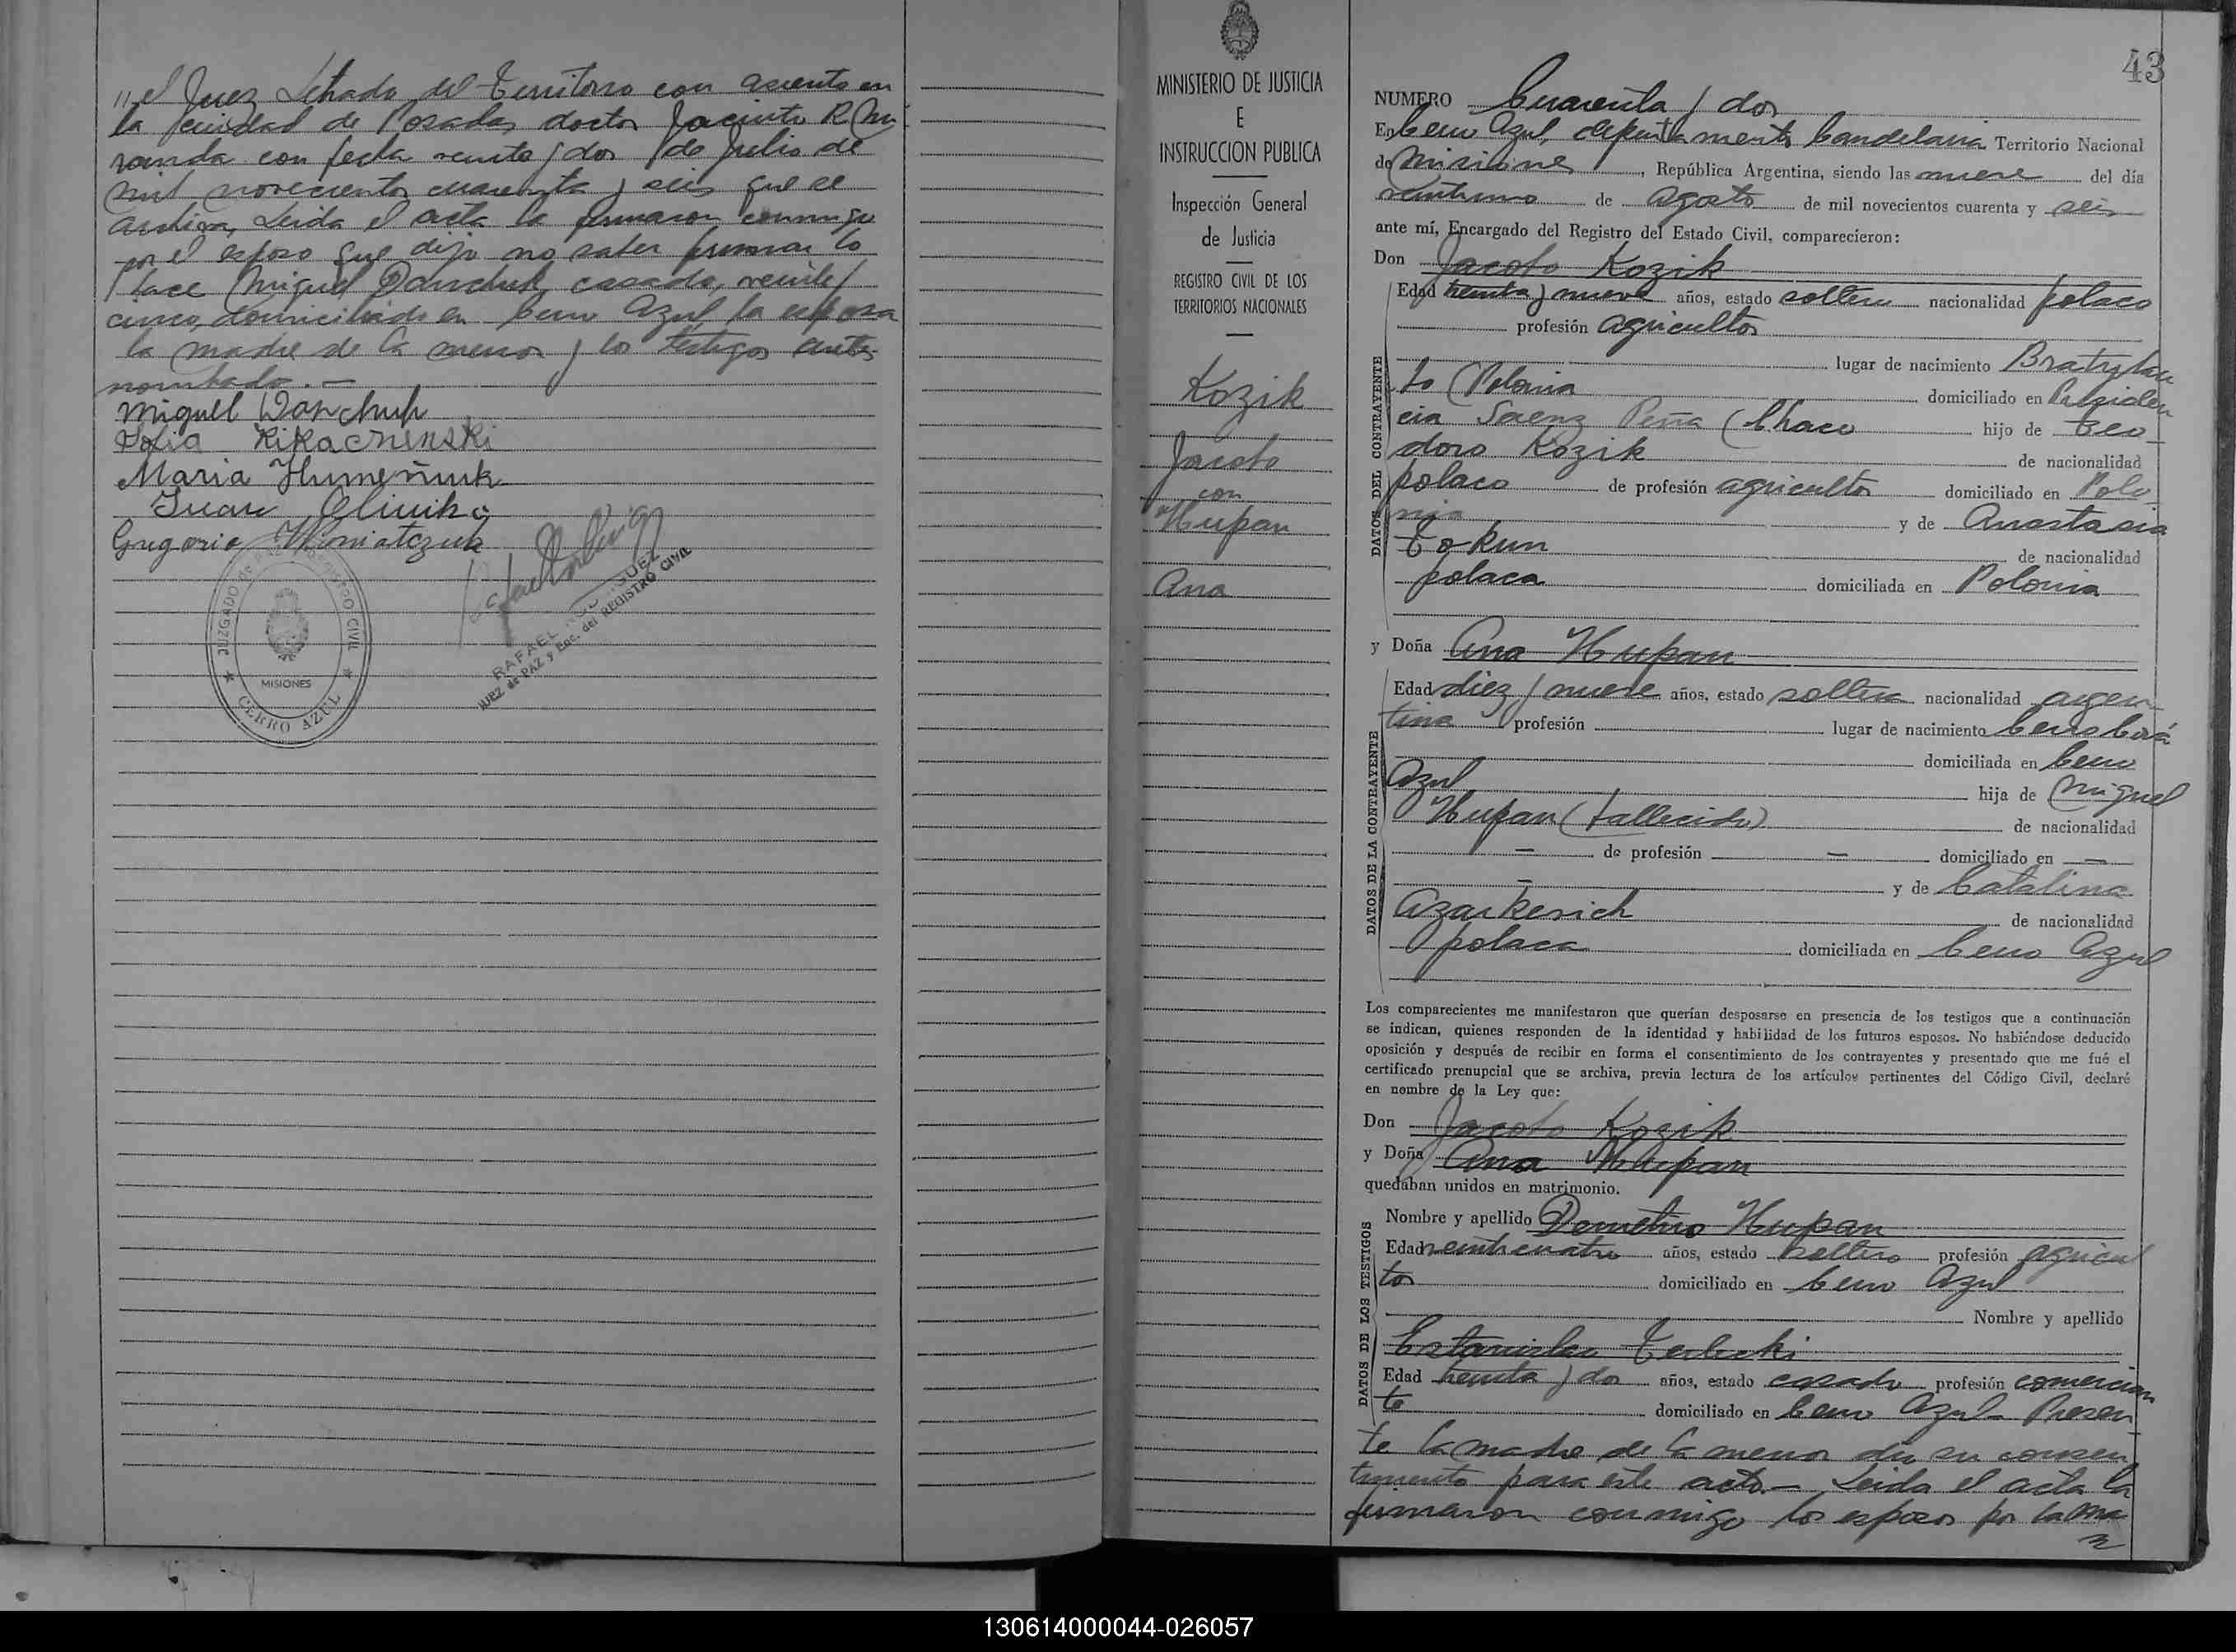 // el Juez Letrado del Territorio con asiento en
la ciudad de Posadas doctor Jacinto R. Mi
randa con fecha veinte y dos de Julio de
mil novecientos cuarenta y seis que se
archiva, Leida el acta la firmaron conmigo
por el esposo que dijo no saber firmar lo
hace Miguel Danchuk, casado, veinte y
cinco, domiciliado en Cerro Azul la esposa
la madre de la menor y los testigos ante
nombrado. —
Miguel Danchuk
Maria Humeñiuk
Juan
Gregorio
JUZGADO de REGISTRO CIVIL
MISIONES
CERRO AZUL
RAFAEL
JUEZ de PAZ y Enc. del REGISTRO CIVIL
MINISTERIO DE JUSTICIA
E
INSTRUCCION PUBLICA
Inspección General
de Justicia
REGISTRO CIVIL DE LOS
TERRITORIOS NACIONALES
Kozik
Jacobo
con
Hupan
Ana
43
NUMERO Cuarenta y dos
En Cerro Azul, departamento Candelaria Territorio Nacional
de Misiones, República Argentina, siendo las nueve del día
veintiuno de Agosto de mil novecientos cuarenta y seis
ante mí, Encargado del Registro del Estado Civil, comparecieron:
Don Jacobo Kozik
DATOS DEL CONTRAYENTE
Edad treinta y nueve años, estado soltero nacionalidad polaco
profesión agricultor
lugar de nacimiento Bratylau
to (Polonia domiciliado en Presiden
cia Saenz Peña (Chaco hijo de Teo
doro Kozik de nacionalidad
polaco de profesión agricultor domiciliado en Polo
nia y de Anastasia
Tokun de nacionalidad
polaca domiciliada en Polonia
y Doña Ana Hupan
DATOS DE LA CONTRAYENTE
Edad diez y nueve años, estado soltera nacionalidad argen
tina profesión lugar de nacimiento Cerro Corá
domiciliada en Cerro
Azul hija de Miguel
Hupan (fallecido) de nacionalidad
— de profesión — domiciliado en —
— y de Catalina
Azarkevich de nacionalidad
polaca domiciliada en Cerro Azul
Los comparecientes me manifestaron que querían desposarse en presencia de los testigos que a continuación
se indican, quienes responden de la identidad y habilidad de los futuros esposos. No habiéndose deducido
oposición y después de recibir en forma el consentimiento de los contrayentes y presentado que me fué el
certificado prenupcial que se archiva, previa lectura de los artículos pertinentes del Código Civil, declaré
en nombre de la Ley que:
Don Jacobo Kozik
y Doña Ana Hupan
quedaban unidos en matrimonio.
DATOS DE LOS TESTIGOS
Nombre y apellido Demetrio Hupan
Edad veinticuatro años, estado soltero profesión agricul
tor domiciliado en Cerro Azul
Nombre y apellido
Estanislau Terlecki
Edad treinta y dos años, estado casado profesión comercian
te domiciliado en Cerro Azul- Presen
te la madre de la menor dio su consen
timiento para este acto.— Leida el acta la
firmaron conmigo los esposos por la ma
130614000044-026057